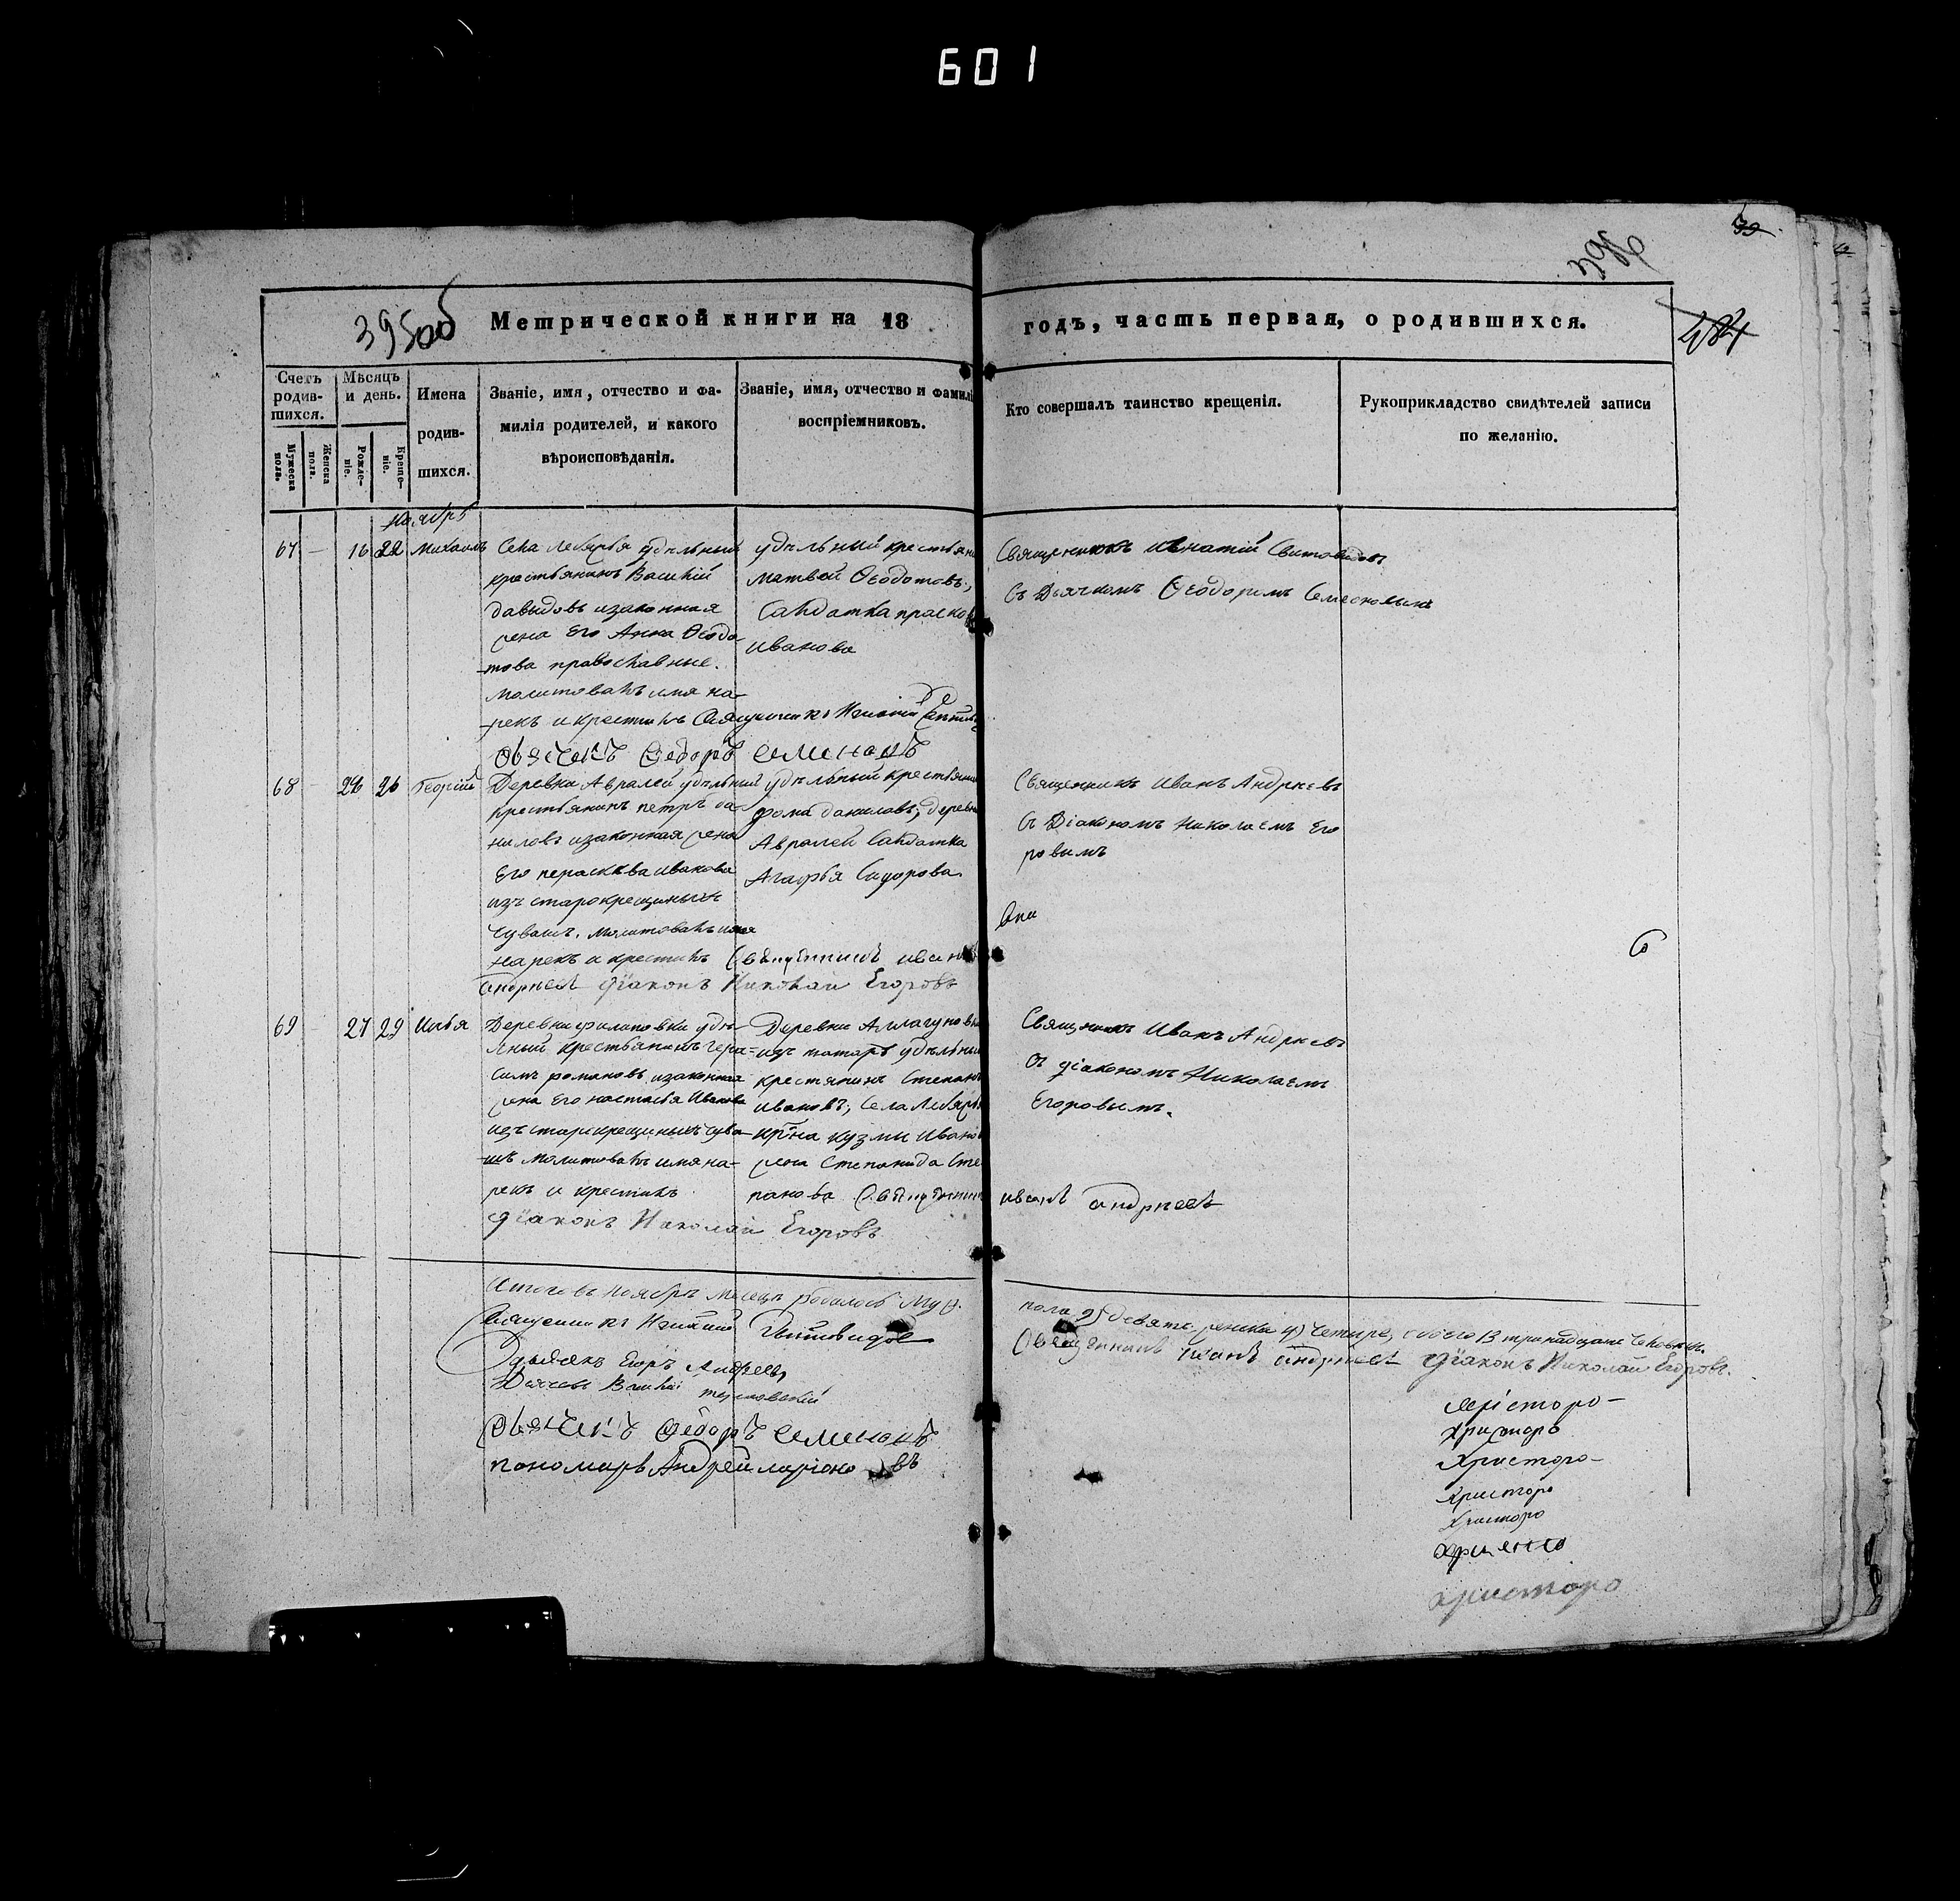 601
39
396
395об
484
Метрической книги на 18 годъ, часть первая, о родившихся.
Счетъ родив-шихся.
Мужеска полъ.
Женска полъ.
Мѣсяцъ и день.
Рожде-ніе.
Креще-ніе.
Имена
родив-
шихся.
Званіе, имя, отчество и фа-
милія родителей, и какого
вѣроисповѣданія.
Званіе, имя, отчество и фамилі
воспріемниковъ.
Кто совершалъ таинство крещенія.
Рукоприкладство свидѣтелей записи
по желанію.
Ноябрь
67 – 16 22 Михаилъ
Села Лебяжья удѣльный
крестьянинъ Василій
давыдовъ изаконная
жена Его Анна Ѳеодо-
това православные.
молитвовалъ имя на-
рекъ и крестилъ Священникъ Игнатій
дьячекъ Ѳедоръ семеновъ
удѣльный крестьяни
матвей Ѳеодотовъ;
Салдатка праско
иванова
Священникъ Игнатій Свитовидовъ
Съ Дьячкомъ Ѳеодоромъ Семеновымъ
68 – 26 26 Георгій
Деревни Авралей удѣльный
крестьянинъ петръ да-
ниловъ изаконная жена
Его параскева иванова
изъ старокрещеныхъ
чувашъ. молитвовалъ имя
нарекъ и крестилъ Священникъ иванъ
андреевъ діаконъ Николай Егоровъ
удѣльный крестьянин
фома даниловъ; деревни
Авралей Салдатка
Агафья Сидорова.
Священникъ Иванъ Андреевъ
Съ Діакономъ Николаемъ Его
ровымъ
69 – 27 29 Илья
Деревни филиповки удѣ-
льный крестьянинъ гера-
симъ романовъ изаконная
жена Его настасья Иванова
изъ старокрещеныхъ чува-
шъ молитвовалъ имя на-
рекъ и крестилъ
діаконъ Николай Егоровъ
Деревни
изъ татаръ удѣльный
крестянинъ Степанъ
ивановъ; Села Лебяжья
кр̃на кузмы Иванов
жена Степанида Сте
панова Священникъ иванъ андреевъ
Священникъ Иванъ Андреевъ
Съ діакономъ Николаемъ
Егоровымъ.
Итого въ Ноябрѣ месецѣ родилось Муж.
пола 9) девять женска 4) четыре, обоего 13 тринадцать человѣкъ.
Священникъ Игнатій Свитовидовъ
Священникъ иванъ андреевъ діаконъ Николай Егоровъ.
дьячекъ Егоръ Андреевъ
Дьячекъ Василій
дьячекъ Ѳедоръ семеновъ
пономарь Андрей ларионовъ
христоро-
христоро
христоро-
христоро
христоро
христоро